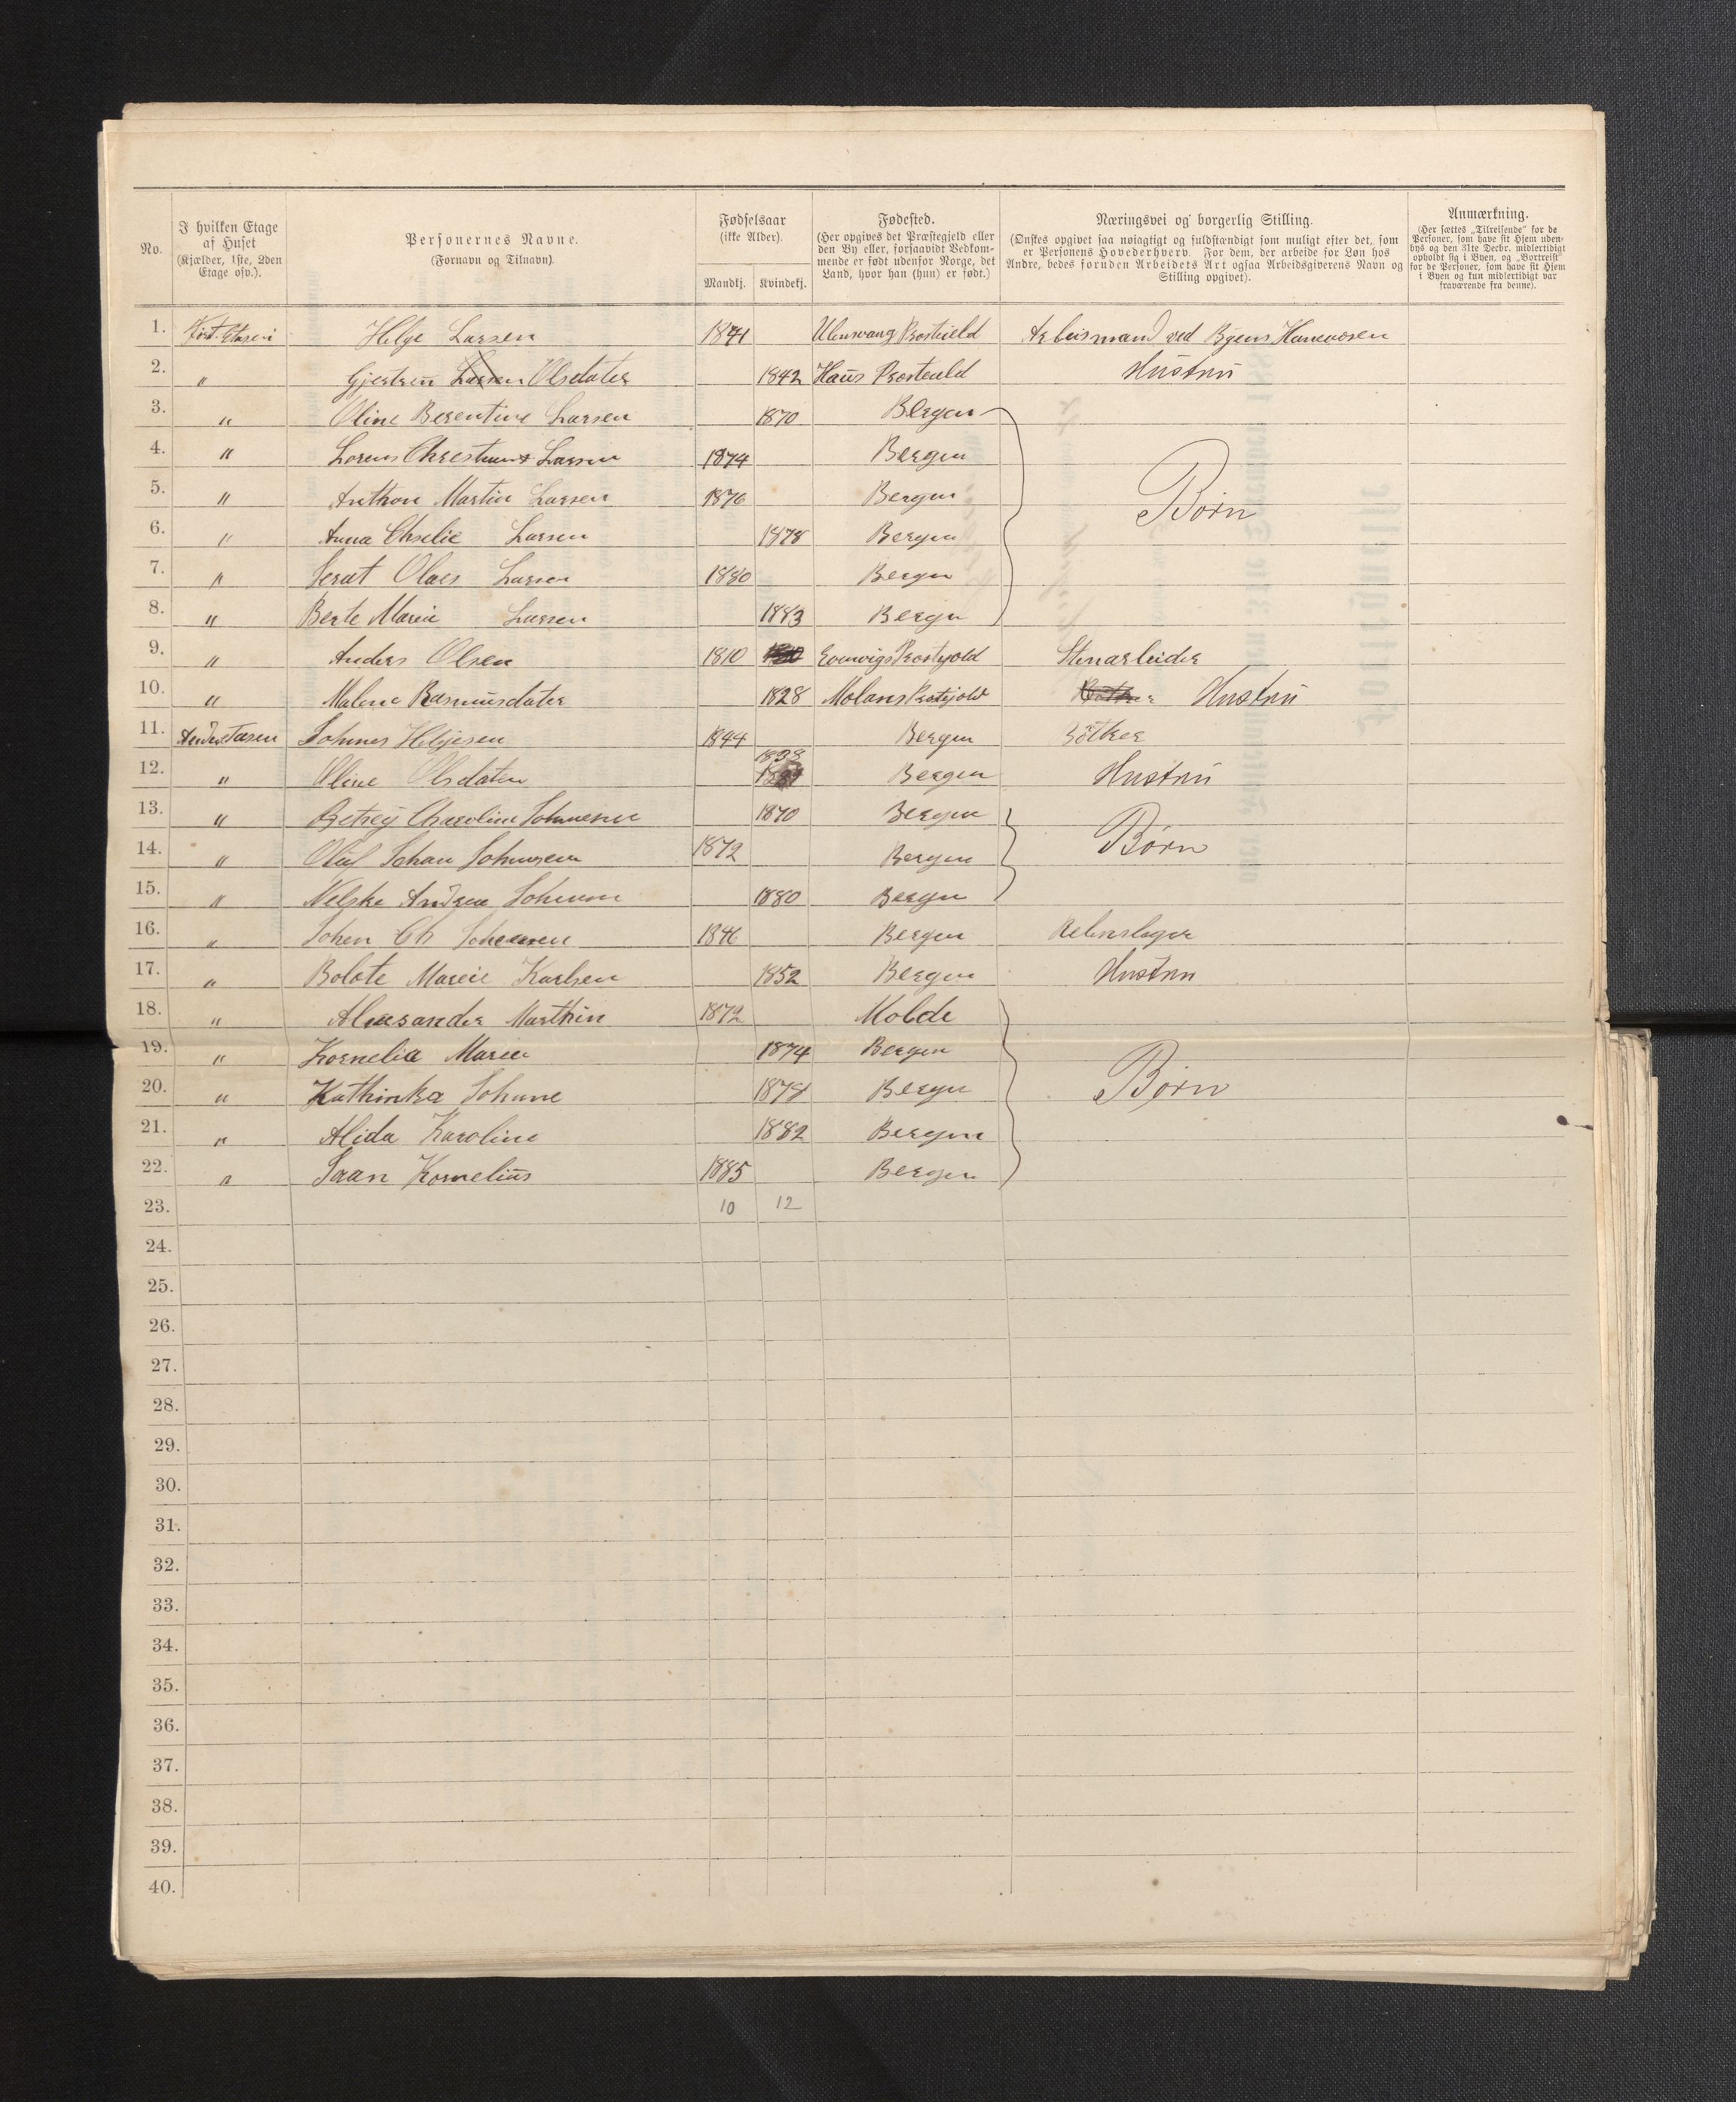 No.
I hvilken Etage
af Huset
(Kjælder, 1ste, 2den
Etage osv.).
Personernes Navne.
(Fornavn og Tilnavn).
Fødselsaar
(ikke Alder).
Mandkj. Kvindekj.
Fødested.
(Her opgives det Præstegjeld eller
den By eller, forsaavidt Vedkom-
mende er født udenfor Norge, det
Land, hvor han (hun) er født.)
Næringsvei og borgerlig Stilling.
(Ønskes opgivet saa nøiagtigt og fuldstændigt som muligt efter det, som
er Personens Hovederhverv. For dem, der arbeide for Løn hos
Andre, bedes foruden Arbeidets Art ogsaa Arbeidsgiverens Navn og
Stilling opgivet).
Anmærkning.
(Her sættes „Tilreisende" for de
Personer, som have sit Hjem uden-
bys og den 31te Decbr. midlertidigt
opholdt sig i Byen, og „Bortreist"
for de Personer, som have sit Hjem
i Byen og kun midlertidigt var
fraværende fra denne).
1. Helge Larsen 1841 Ulensvang Arbeismand ved Byens
2. " Gjertrui Larsen Olsdater 1842 Haus Hustru
3. " Oline Berentine Larsen 1870 Bergen
4. " Lorens Larsen 1874 Bergen
5. " Anthon Martin Larsen 1876 Bergen Børn
6. " Anna Larsen 1878 Bergen
7. " Olaes Larsen 1880 Bergen
8. " Berte Marie Larsen 1883 Bergen
9. " Anders Olsen 1810 Stenarbeider
10. " Malene Rasmusdater 1828 Hustru
11. Johnes Helgesen 1844 Bergen Bøtker
12. " Oline Olsdater 1838 Bergen Hustru
13. " Betzey Charoline 1870 Bergen
14. " Oluf Johan 1872 Bergen Børn
15. " Nelske Andrea 1880 Bergen
16. " Johen Ch 1846 Bergen Rebenslager
17. " Bolote Mareie Karlsen 1852 Bergen Hustru
18. " Alexsander Marthin 1872 Molde
19. " Kornelia Maria 1874 Bergen
20. " Kathinka Johane 1878 Bergen Børn
21. " Alida Karoline 1882 Bergen
22. " Kornelius 1885 Bergen
23. 10 12
24.
25.
26.
27.
28.
29.
30.
31.
32.
33.
34.
35.
36.
37.
38.
39.
40.